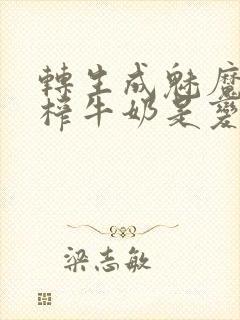 轉生成魅魔
榨牛奶是愛
梁志敏